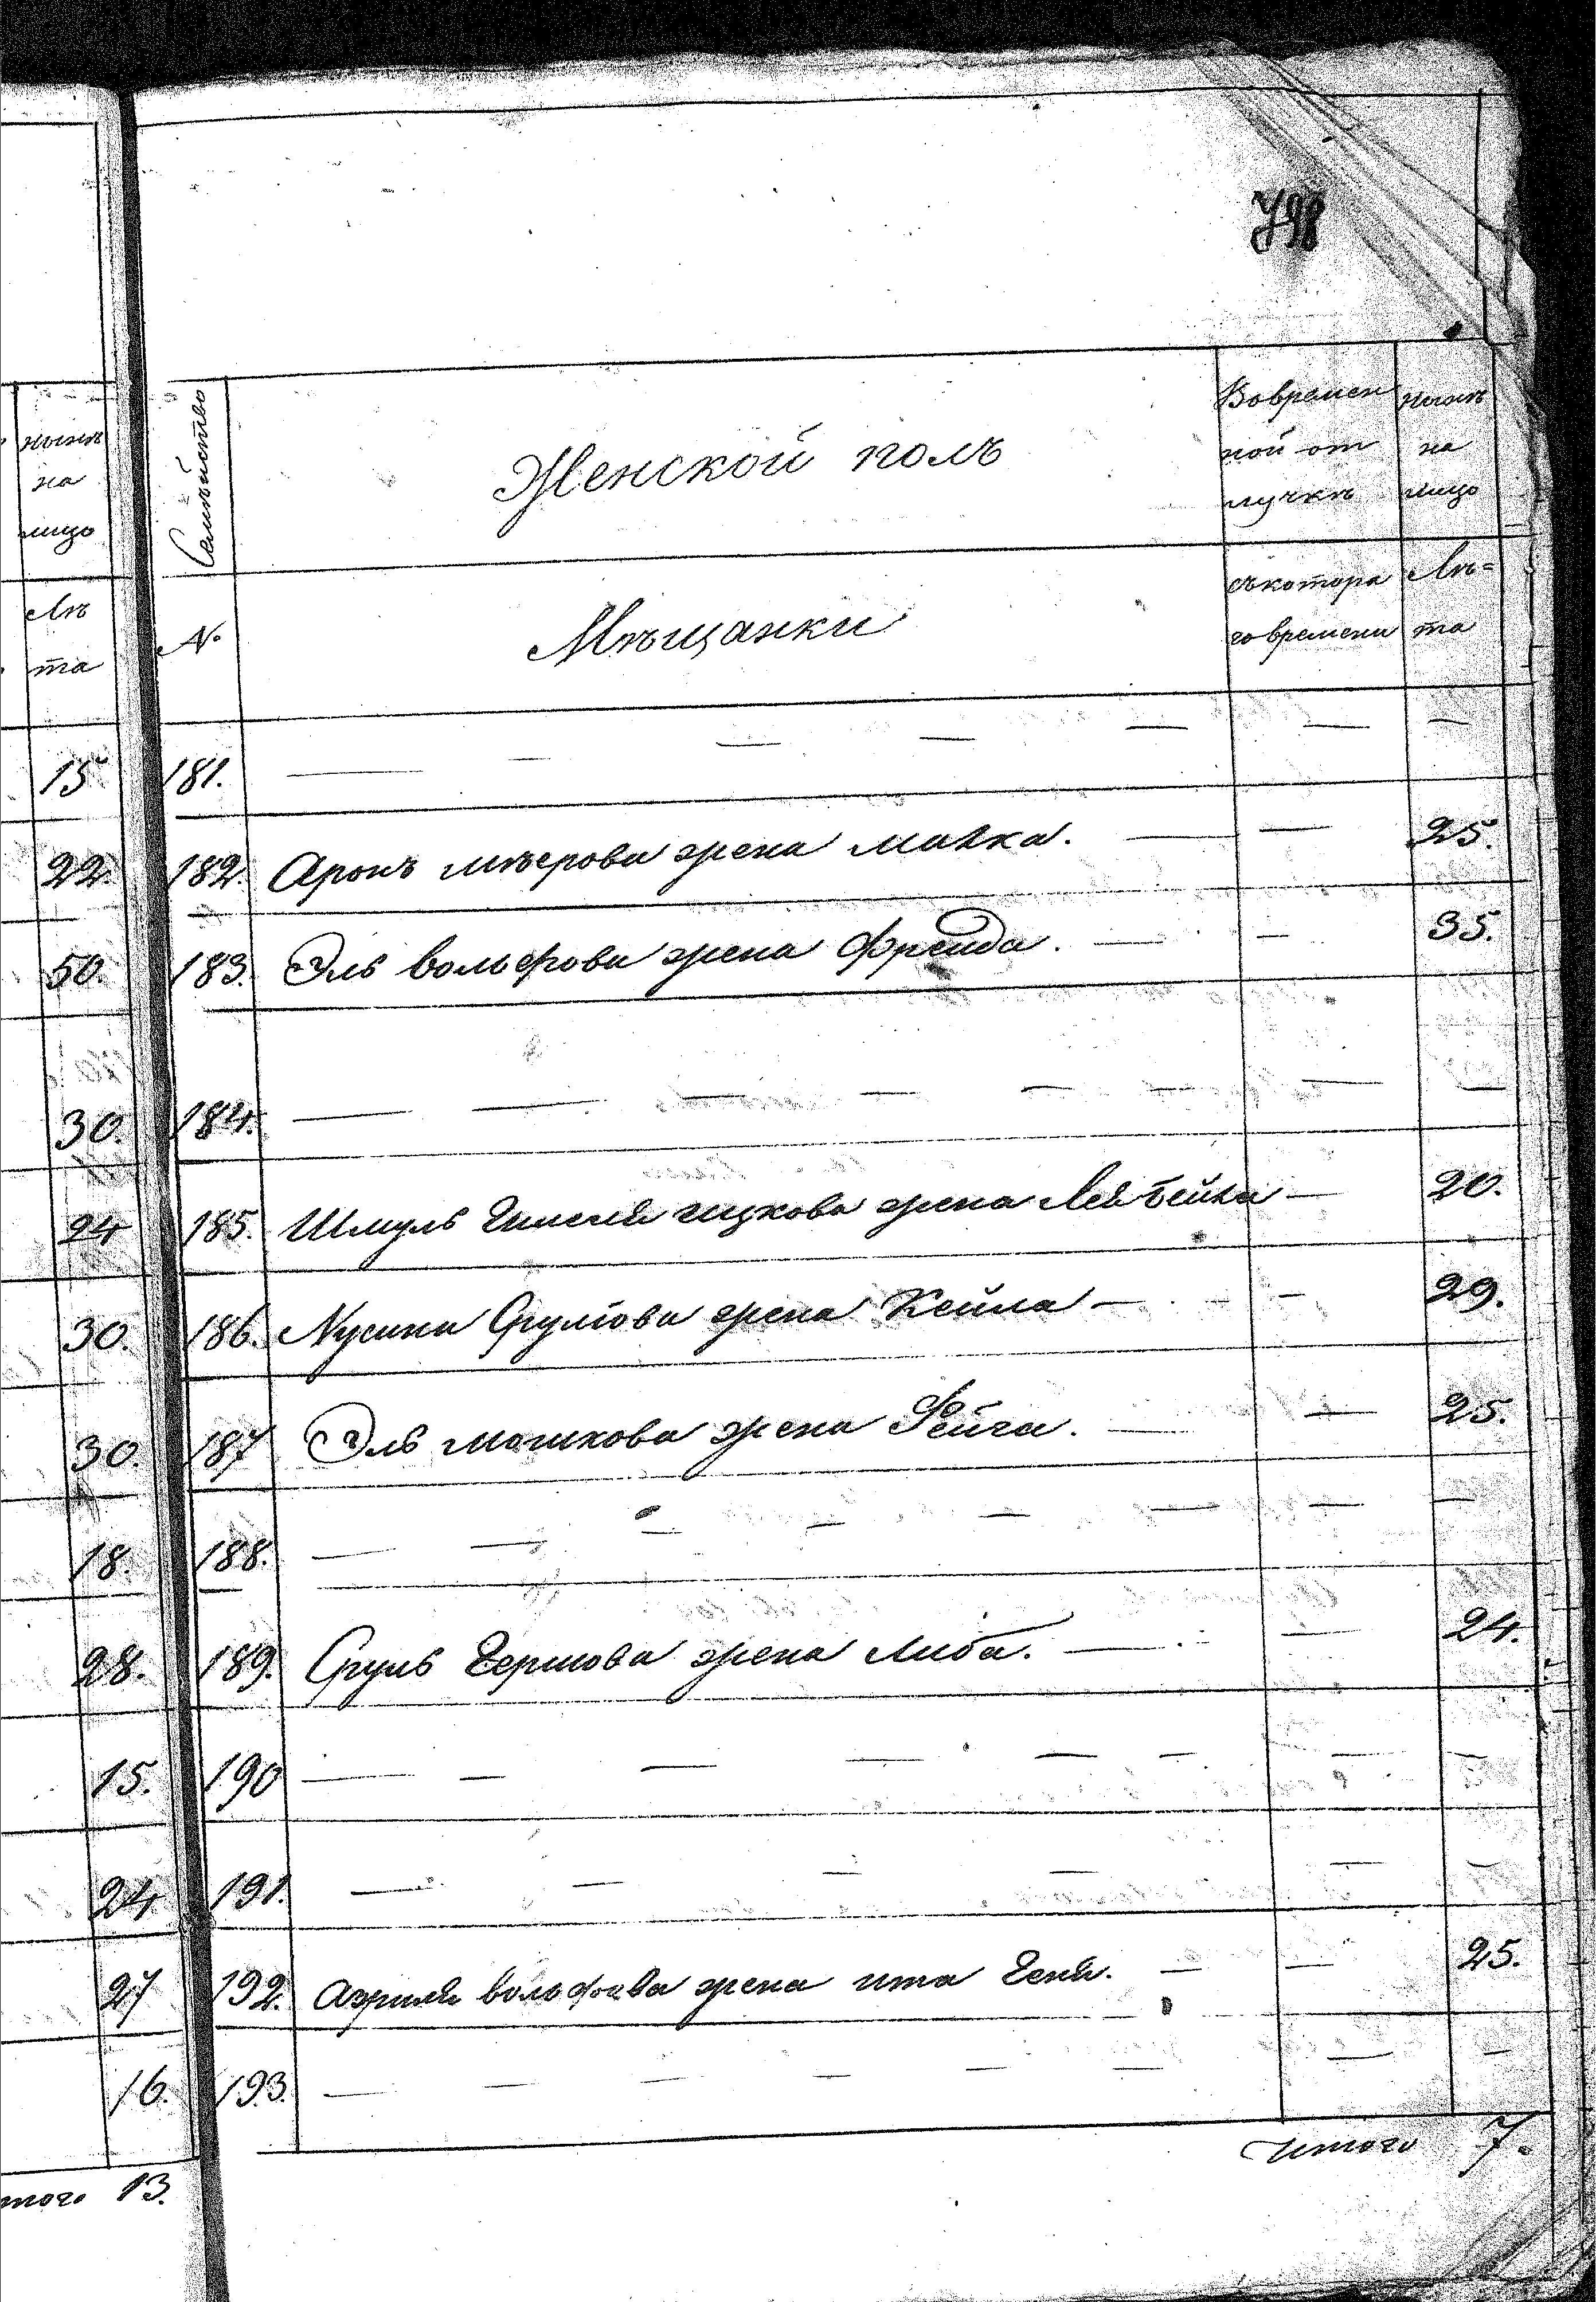 798
нынѣ
на
лицо
Лѣ
та
15
22.
50.
30.
24
30.
30.
18.
28.
15.
24
27
16.
13.
Семѣйство
Женской полъ
Вовремен
ной от
лучкѣ
нынѣ
на
лицо
№
Мѣщанки
съкотора
го времени
Лѣ=
та
181. — — — — — — —
182. Аронъ мѣерова жена малка. — — 25.
183. Эль вольфова жена Фрейда. — — 35.
184. — — — — — — — —
185. Шмуль Гимпля ицкова жена Лея бейла — 20.
186. Нусина Срулiова жена Кейла — — 29.
187 Эль мошкова жена Фейга. — — 25.
188. — — — — — — — —
189. Сруль Гершова жена Либа. — — 24.
190 — — — — — — — —
191. — — — — — —
192. Азриля вольфова жена ита Геня. — — 25.
193. — — — — — — — —
Итого 7.